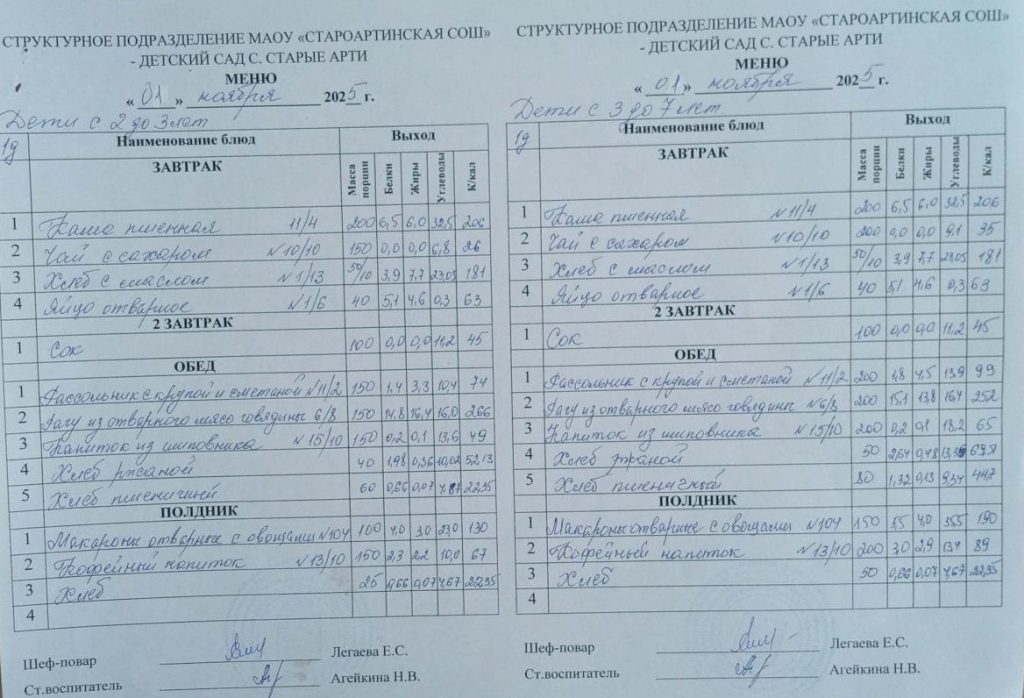 СТРУКТУРНОЕ ПОДРАЗДЕЛЕНИЕ МАОУ «СТАРОАРТИНСКАЯ СОШ»
- ДЕТСКИЙ САД С. СТАРЫЕ АРТИ
МЕНЮ
« 01 » ноября 2025 г.
Дети с 2 до 3 лет
1д Наименование блюд Выход
ЗАВТРАК Масса порции Белки Жиры Углеводы К/кал
1 Каша пшенная 11/4 200 6,5 6,0 32,5 206
2 Чай с сахаром №10/10 150 0,0 0,0 6,8 26
3 Хлеб с маслом №1/13 50/10 3,9 7,7 23,05 181
4 Яйцо отварное №1/6 40 5,1 4,6 0,3 63
2 ЗАВТРАК
1 Сок 100 0,0 0,0 11,2 45
ОБЕД
1 Рассольник с крупой и сметаной №11/2 150 1,4 3,3 10,4 74
2 Рагу из отварного мясо говядины 6/8 150 14,8 16,4 16,0 266
3 Напиток из шиповника №15/10 150 0,2 0,1 13,6 49
4 Хлеб ржаной 40 1,98 0,36 10,02 52,13
5 Хлеб пшеничный 60 0,66 0,07 4,67 22,35
ПОЛДНИК
1 Макароны отварные с овощами №104 100 4,0 3,0 23,0 130
2 Кофейный напиток №13/10 150 2,3 2,2 10,0 67
3 Хлеб 25 0,66 0,07 4,67 22,35
4
Шеф-повар Легаева Е.С.
Ст.воспитатель Агейкина Н.В.
СТРУКТУРНОЕ ПОДРАЗДЕЛЕНИЕ МАОУ «СТАРОАРТИНСКАЯ СОШ»
- ДЕТСКИЙ САД С. СТАРЫЕ АРТИ
МЕНЮ
« 01 » ноября 2025 г.
Дети с 3 до 7 лет.
1д Наименование блюд Выход
ЗАВТРАК Масса порции Белки Жиры Углеводы К/кал
1 Каша пшенная №11/4 200 6,5 6,0 32,5 206
2 Чай с сахаром №10/10 200 0,0 0,0 9,1 35
3 Хлеб с маслом №1/13 50/10 3,9 7,7 23,05 181
4 Яйцо отварное №1/6 40 5,1 4,6 0,3 63
2 ЗАВТРАК
1 Сок 100 0,0 0,0 11,2 45
ОБЕД
1 Рассольник с крупой и сметаной №11/2 200 1,8 4,5 13,9 99
2 Рагу из отварного мясо говядины №6/8 200 15,1 13,8 16,4 252
3 Напиток из шиповника №15/10 200 0,2 0,1 18,2 65
4 Хлеб ржаной 50 2,64 0,48
5 Хлеб пшеничный 80 1,32 0,13 9,34 44,7
ПОЛДНИК
1 Макароны отварные с овощами №104 150 5,5 4,0 35,5 190
2 Кофейный напиток №13/10 200 3,0 2,9 13,4 89
3 Хлеб 50 0,66 0,07 4,67 22,35
4
Шеф-повар Легаева Е.С.
Ст.воспитатель Агейкина Н.В.